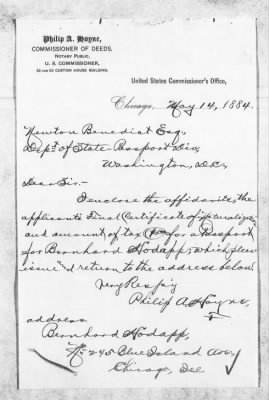 Philip A. Hoyne,
COMMISSIONER OF DEEDS,
NOTARY PUBLIC,
U. S. COMMISSIONER,
CUSTOM HOUSE BUILDING.
United States Commissioner's Office,
Chicago, May 14, 1884.
Newton Benedict Esq,
Dept of State Passport Div,
Washington, D.C.
Dear Sir:-
I enclose the affidavits, the
applicants Final Certificate of naturalization
and amount of tax for a Passport
for Bernhard Hodapp, which please
issue & return to the address below
Very Resp'y
Philip A. Hoyne,
address
Bernhard Hodapp,
No 245 Blue Island Ave,
Chicago, Ill